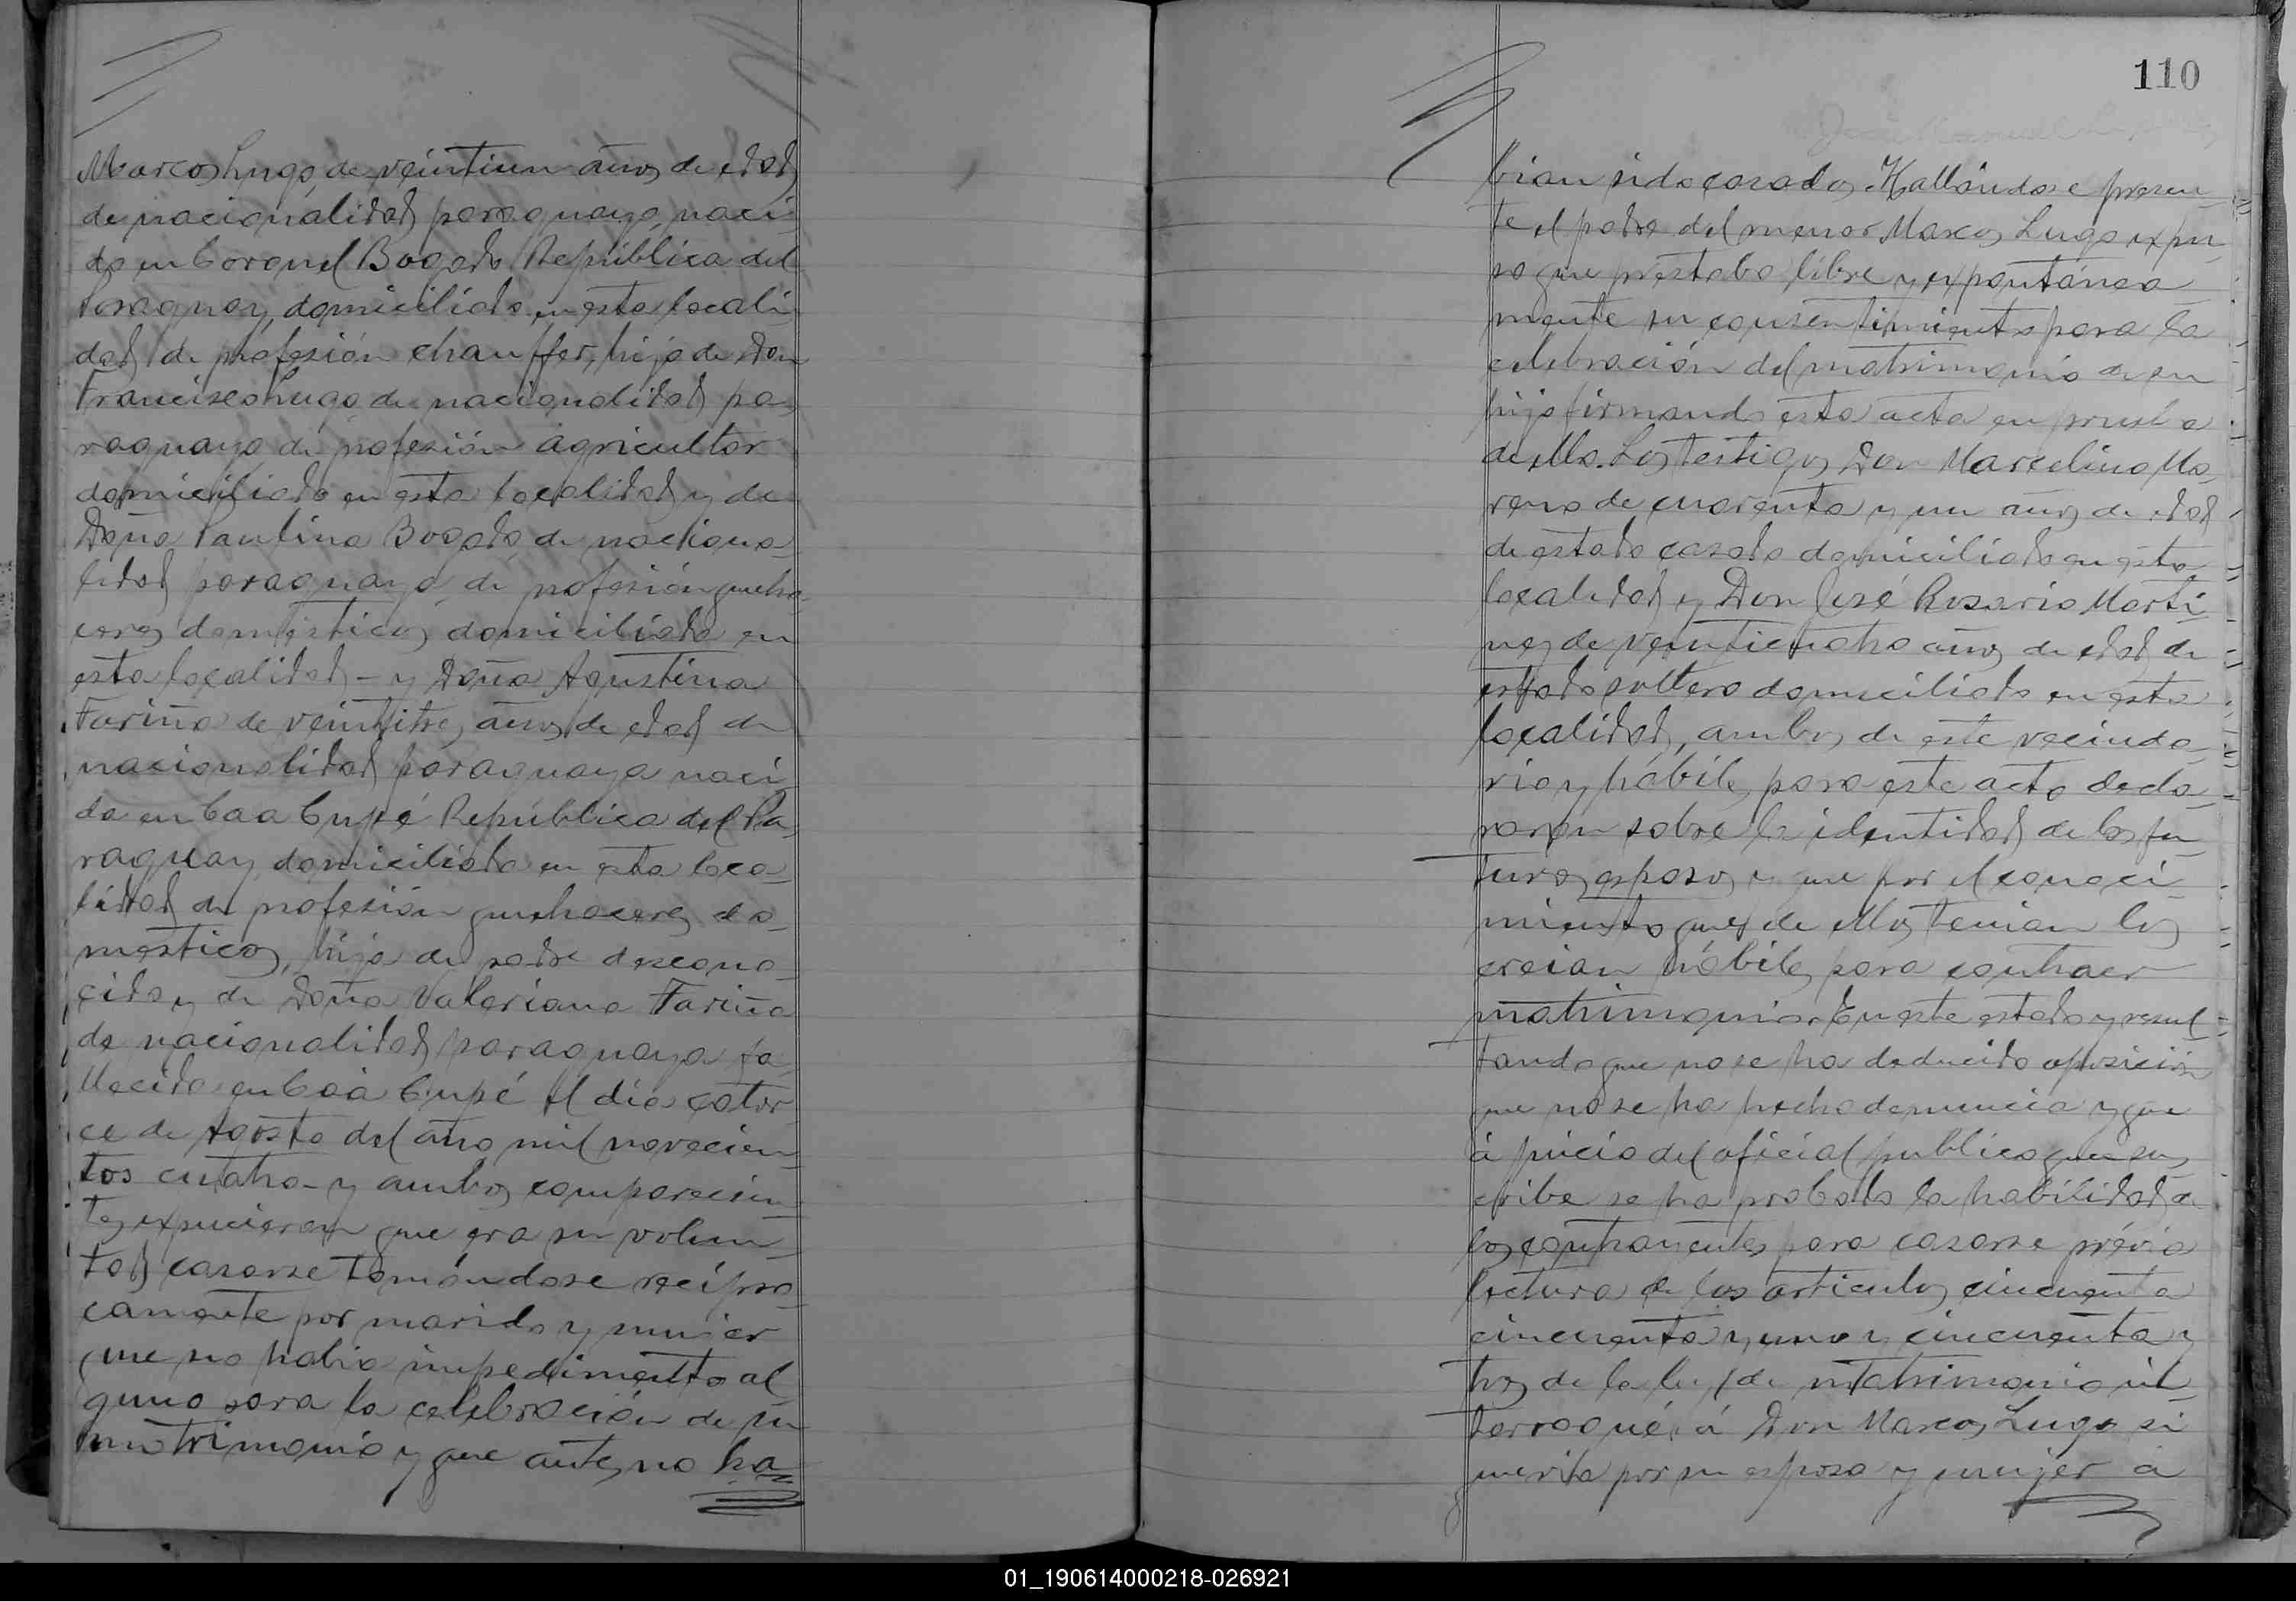 Marcos Lugo, de veintiun años de edad
de nacionalidad paraguaya, naci-
do en Coronel Bogado República del
Paraguay, domiciliado en esta locali-
dad de profesión chauffer, hijo de Don
Francisco Lugo de nacionalidad pa-
raguaya de profesión agricultor
domiciliado en esta localidad y de
Doña Paulina Bogado, de naciona-
lidad paraguaya, de profesión queha-
ceres domésticos, domiciliada en
esta localidad - y Doña Agustina
Fariña de veintitres años de edad de
nacionalidad paraguaya naci-
da en Caa Cupé República del Pa-
raguay, domiciliada en esta loca-
lidad de profesión quehaceres do-
mésticos, hija de padre descono-
cido y de Doña Valeriana Fariña
de nacionalidad paraguaya fa-
llecida en Caá Cupé el día cator-
ce de Agosto del año mil novecien-
tos cuatro - y ambos comparecien-
tes expucieron que era su volun-
tad casarse tomándose recípro-
camente por marido y mujer
que no había impedimento al-
guno para la celebración de su
matrimonio y que antes no ha
110
bian sido casados. Hallándose presen-
te el padre del menor Marcos Lugo expu-
so que prestaba libre y expontánea
mente su consentimiento para la
celebración del matrimonio de su
hijo firmando esta acta en prueba
de ello. Los testigos Don Marcelino Mo-
reno de cuarenta y un años de edad
de estado casado domiciliado en esta
localidad y Don José Rosario Martí-
nez de veinticuatro años de edad de
estado soltero domiciliado en esta
localidad, ambos de este vecinda-
rio y hábiles para este acto decla-
raron sobre la identidad de los fu-
turos esposos y que por el conoci-
miento que de ellos tenian los
creian hábiles para contraer
matrimonio. En este estado y resul-
tando que no se ha deducido oposición
que no se ha hecho denuncia y que
á juicio del oficial publico que sus-
cribe se ha probado la habilidad de
los contrayentes para casarse prévia
lectura de los articulos cincuenta
cincuenta y uno y cincuenta y
tres de la ley de matrimonio in-
terrogué á Don Marcos Lugo si
queria por su esposa y mujer a
01_190614000218-026921